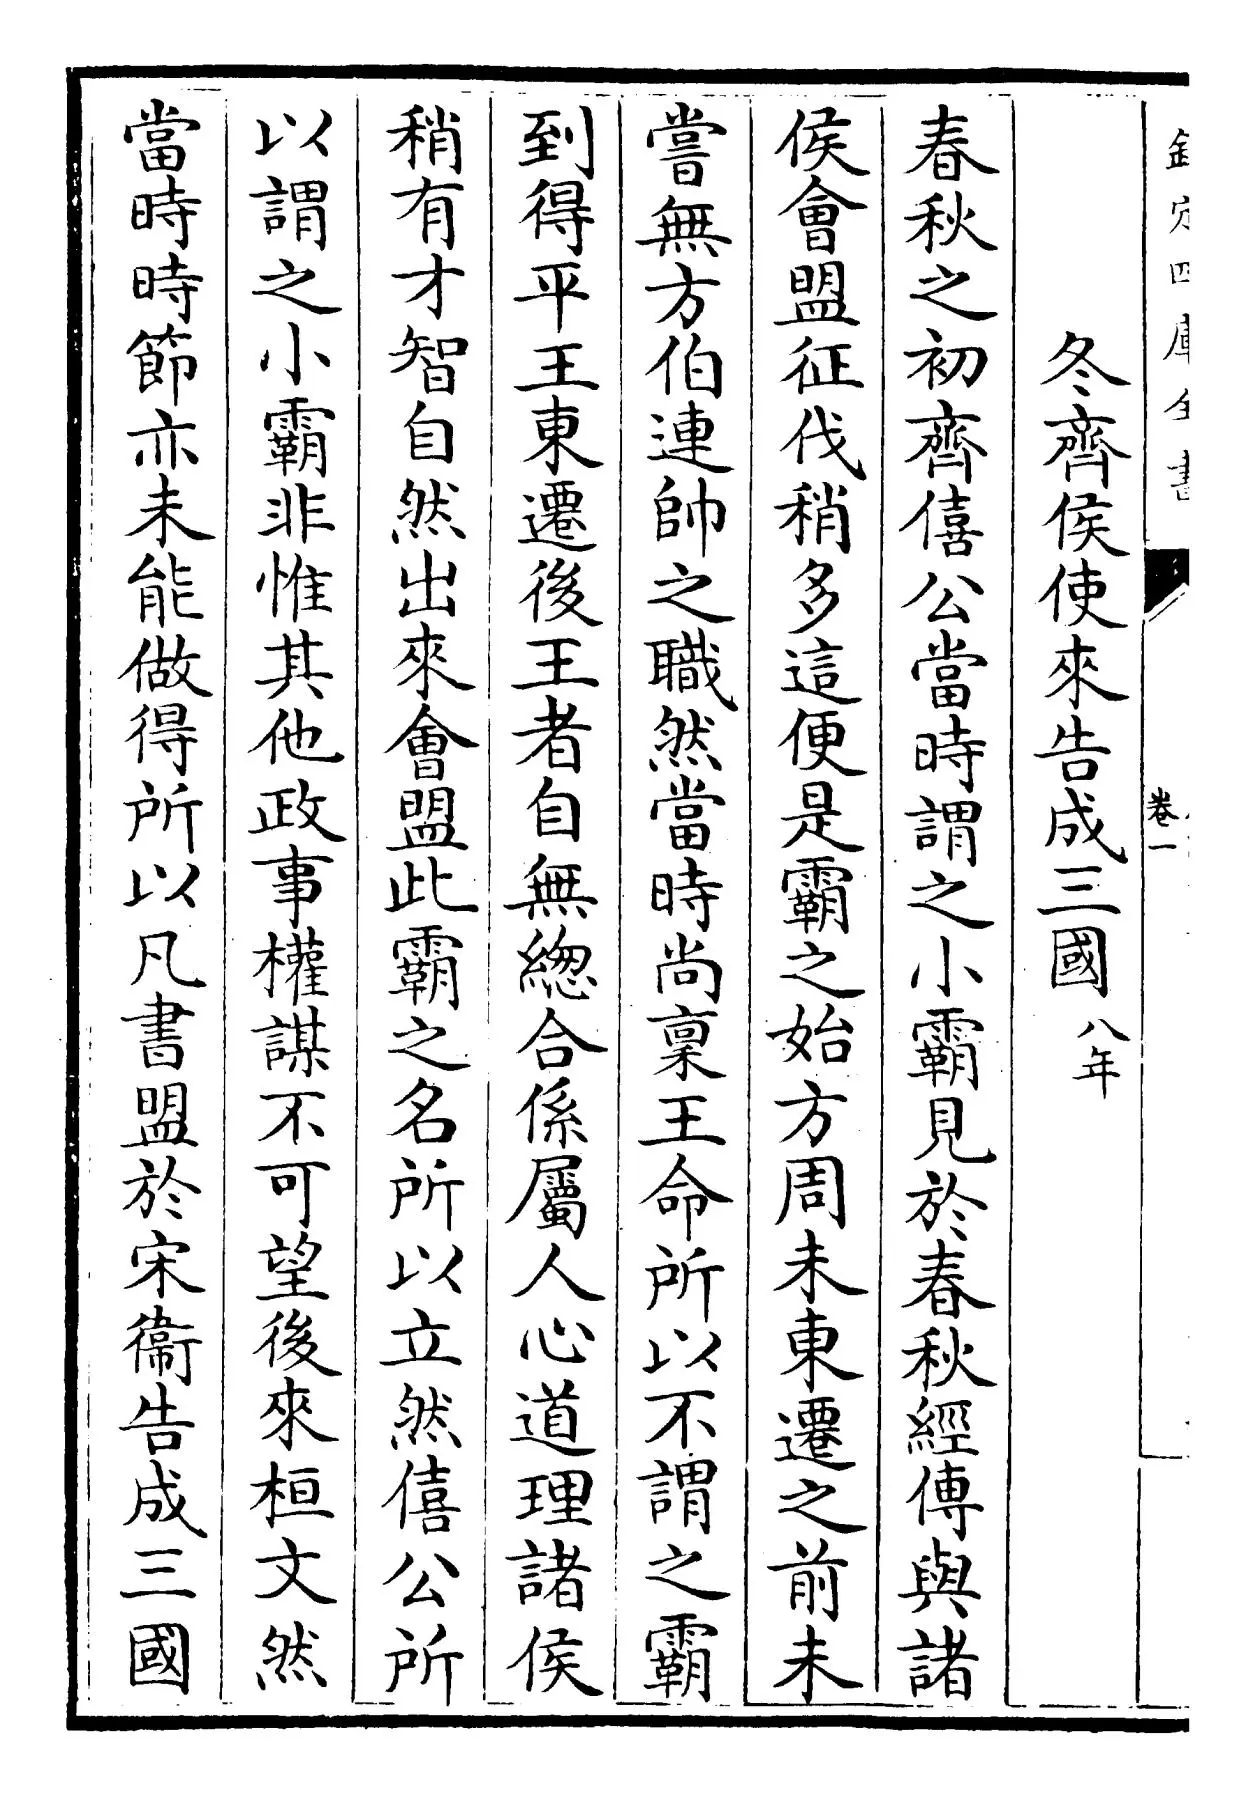 欽定四庫全書
卷一
冬齊侯使來告成三國八年
春秋之初齊僖公當時謂之小霸見於春秋經傳與諸
侯會盟征伐稍多這便是霸之始方周未東遷之前未
嘗無方伯連帥之職然當時尚稟王命所以不謂之霸
到得平王東遷後王者自無緫合係屬人心道理諸侯
稍有才智自然出來會盟此霸之名所以立然僖公所
以謂之小霸非惟其他政事權謀不可望後來桓文然
當時時節亦未能做得所以凡書盟於宋衞告成三國